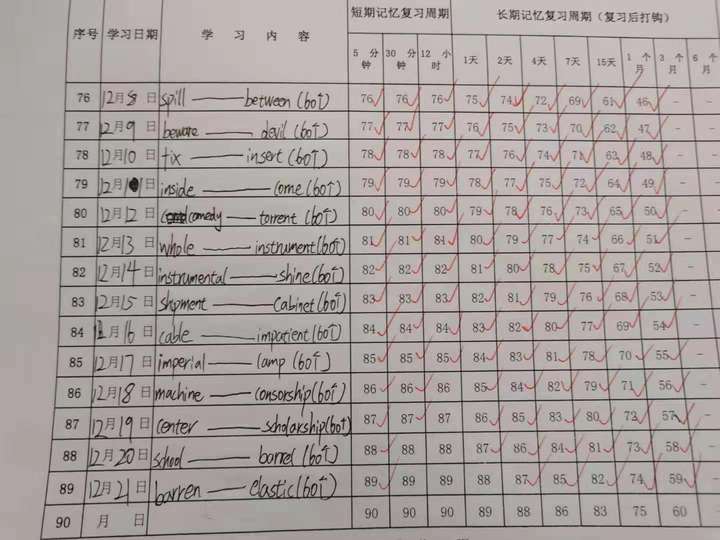 序号 学习日期 学 习 内 容 短期记忆复习周期 长期记忆复习周期（复习后打钩）
5 分钟 30 分钟 12 小时 1天 2天 4天 7天 15天 1 个月 3 个月 6 个月
76 12月8日 spill — between (60个) 76 76 76 75 74 72 69 61 46 - -
77 12月9日 beware — devil (60个) 77 77 77 76 75 73 70 62 47 - -
78 12月10日 fix — insert (60个) 78 78 78 77 76 74 71 63 48 - -
79 12月11日 inside — come (60个) 79 79 79 78 77 75 72 64 49 - -
80 12月12日 comedy — torrent (60个) 80 80 80 79 78 76 73 65 50 - -
81 12月13日 whole — instrument (60个) 81 81 81 80 79 77 74 66 51 - -
82 12月14日 instrumental — shine (60个) 82 82 82 81 80 78 75 67 52 - -
83 12月15日 shpment — cabinet (60个) 83 83 83 82 81 79 76 68 53 - -
84 12月16日 cable — impatient (60个) 84 84 84 83 82 80 77 69 54 - -
85 12月17日 imperial — lamp (60个) 85 85 85 84 83 81 78 70 55 - -
86 12月18日 machine — consorship (60个) 86 86 86 85 84 82 79 71 56 - -
87 12月19日 center — scholarship (60个) 87 87 87 86 85 83 80 72 57 - -
88 12月20日 school — barrel (60个) 88 88 88 87 86 84 81 73 58 - -
89 12月21日 barren — elastic (60个) 89 89 89 88 87 85 82 74 59 - -
90 月 日 90 90 90 89 88 86 83 75 60 - -